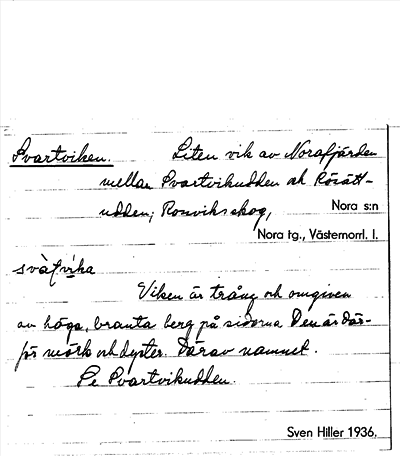 Svartviken. Liten vik av Norafjärden
mellan Svartvikudden och Rösätt-
udden; Ronvik skog, Nora s:n
Nora tg., Västernorrl. l.
svàʈvi̇̀ka
Viken är trång och omgiven
av höga, branta berg på sidorna Den är där-
för mörk och dyster. Därav namnet.
Se Svartvikudden.
Sven Hiller 1936.